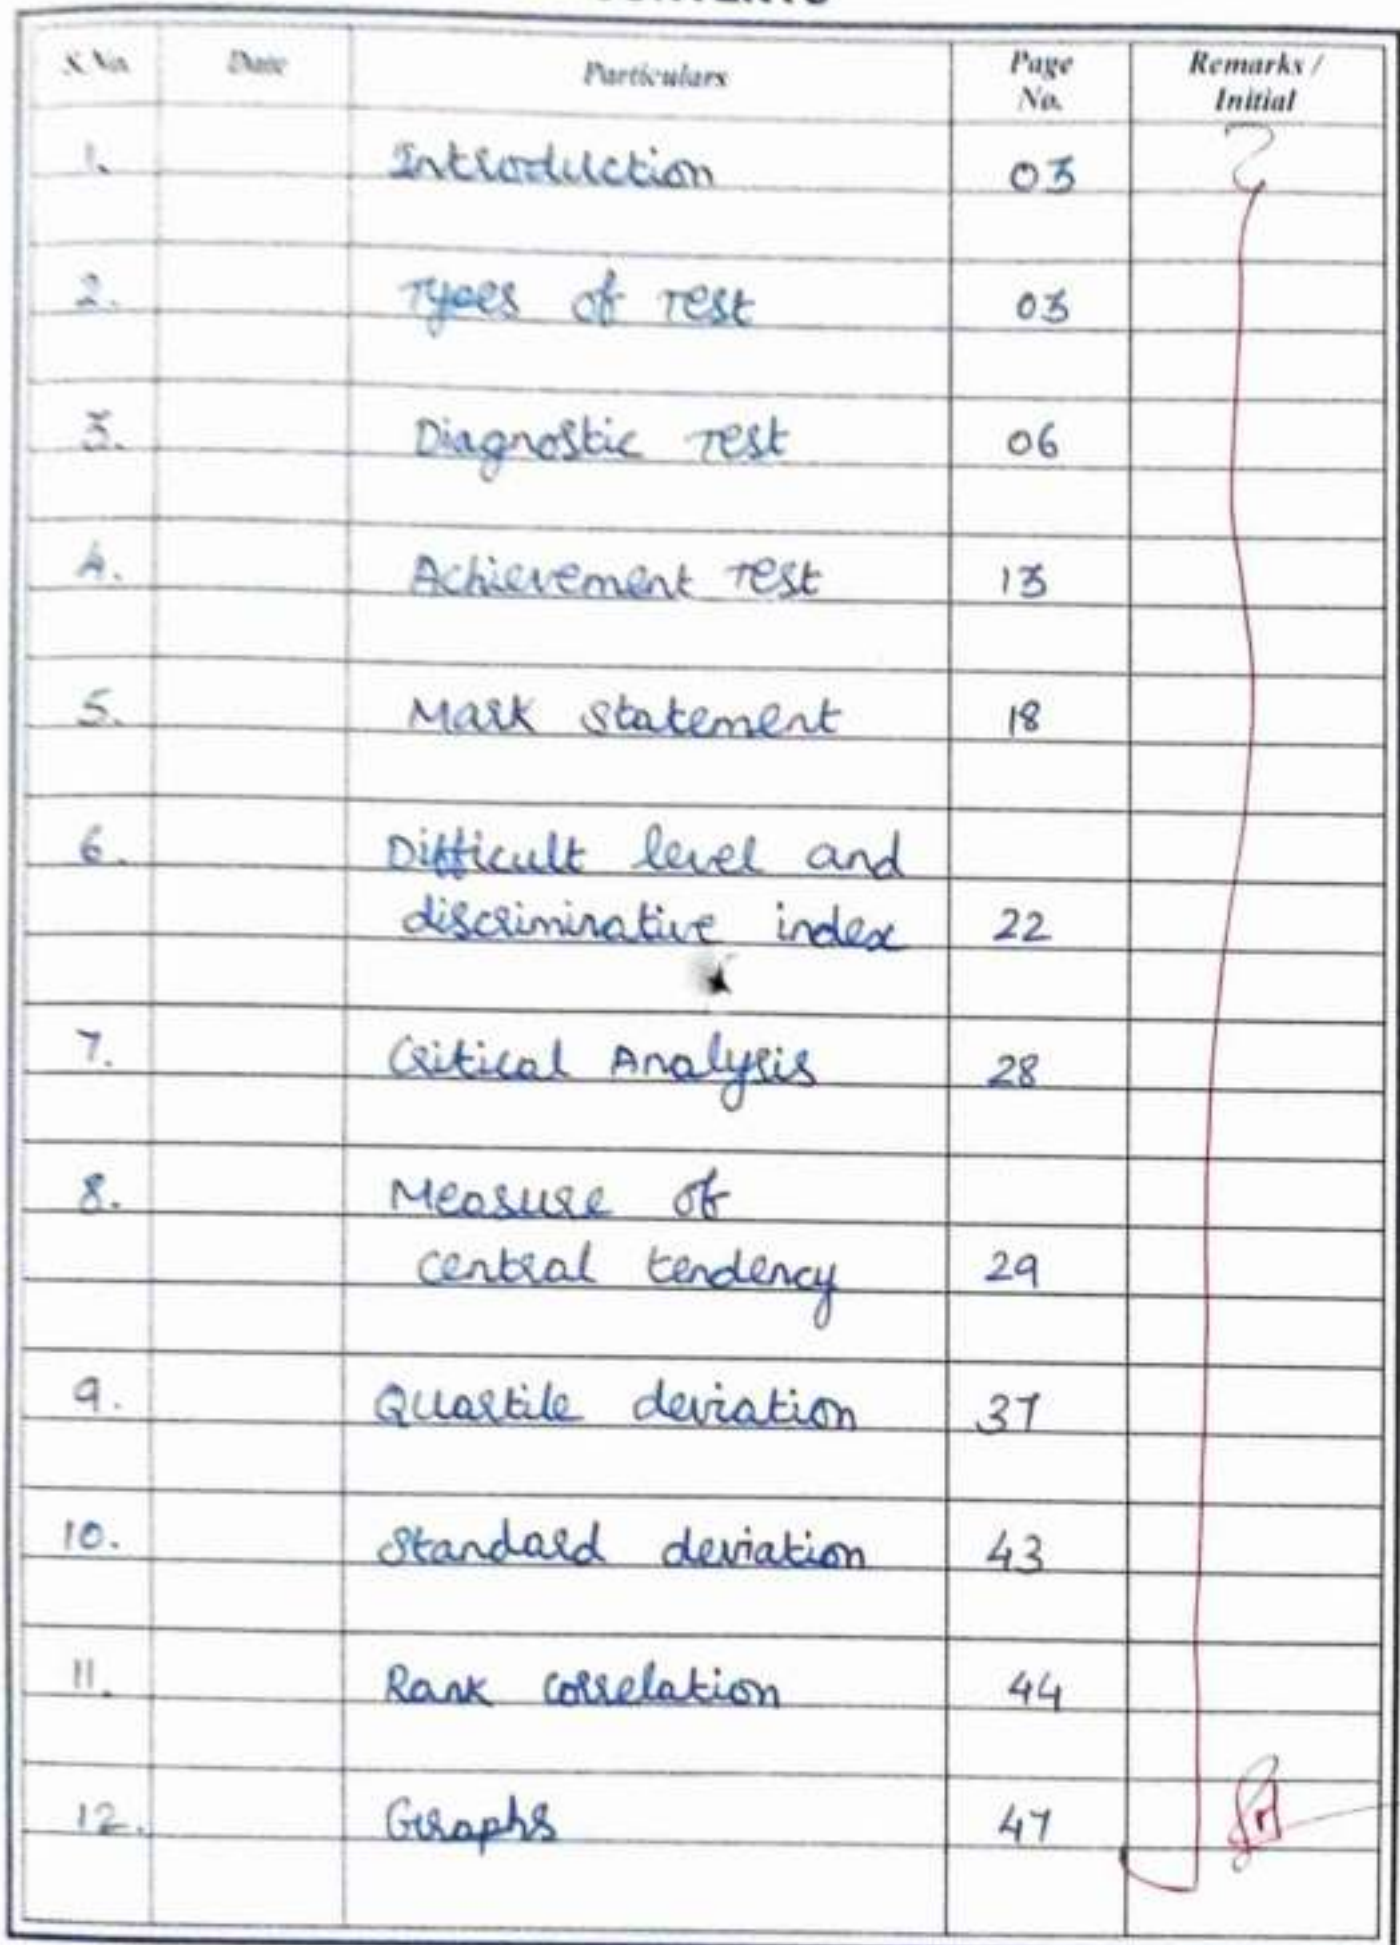 S. No. Date Particulars Page No. Remarks / Initial
1. Introduction 03
2. Types of Test 03
3. Diagnostic Test 06
4. Achievement Test 13
5. Mark Statement 18
6. Difficult level and
discriminative index 22
7. Critical Analysis 28
8. Measure of
central tendency 29
9. Quartile deviation 37
10. Standard deviation 43
11. Rank correlation 44
12. Graphs 47